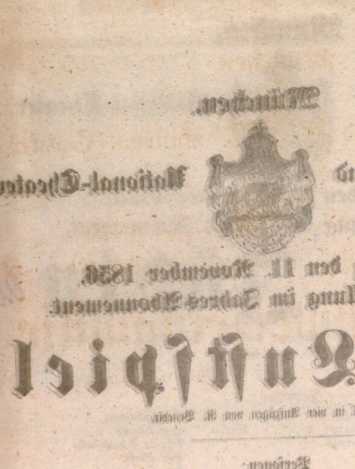 München.
nd National-Theater
den 11. November 1856.
llung im Jahres-Abonnement.
Lustspiel
in vier Aufzügen von R. Benedix.
Personen: